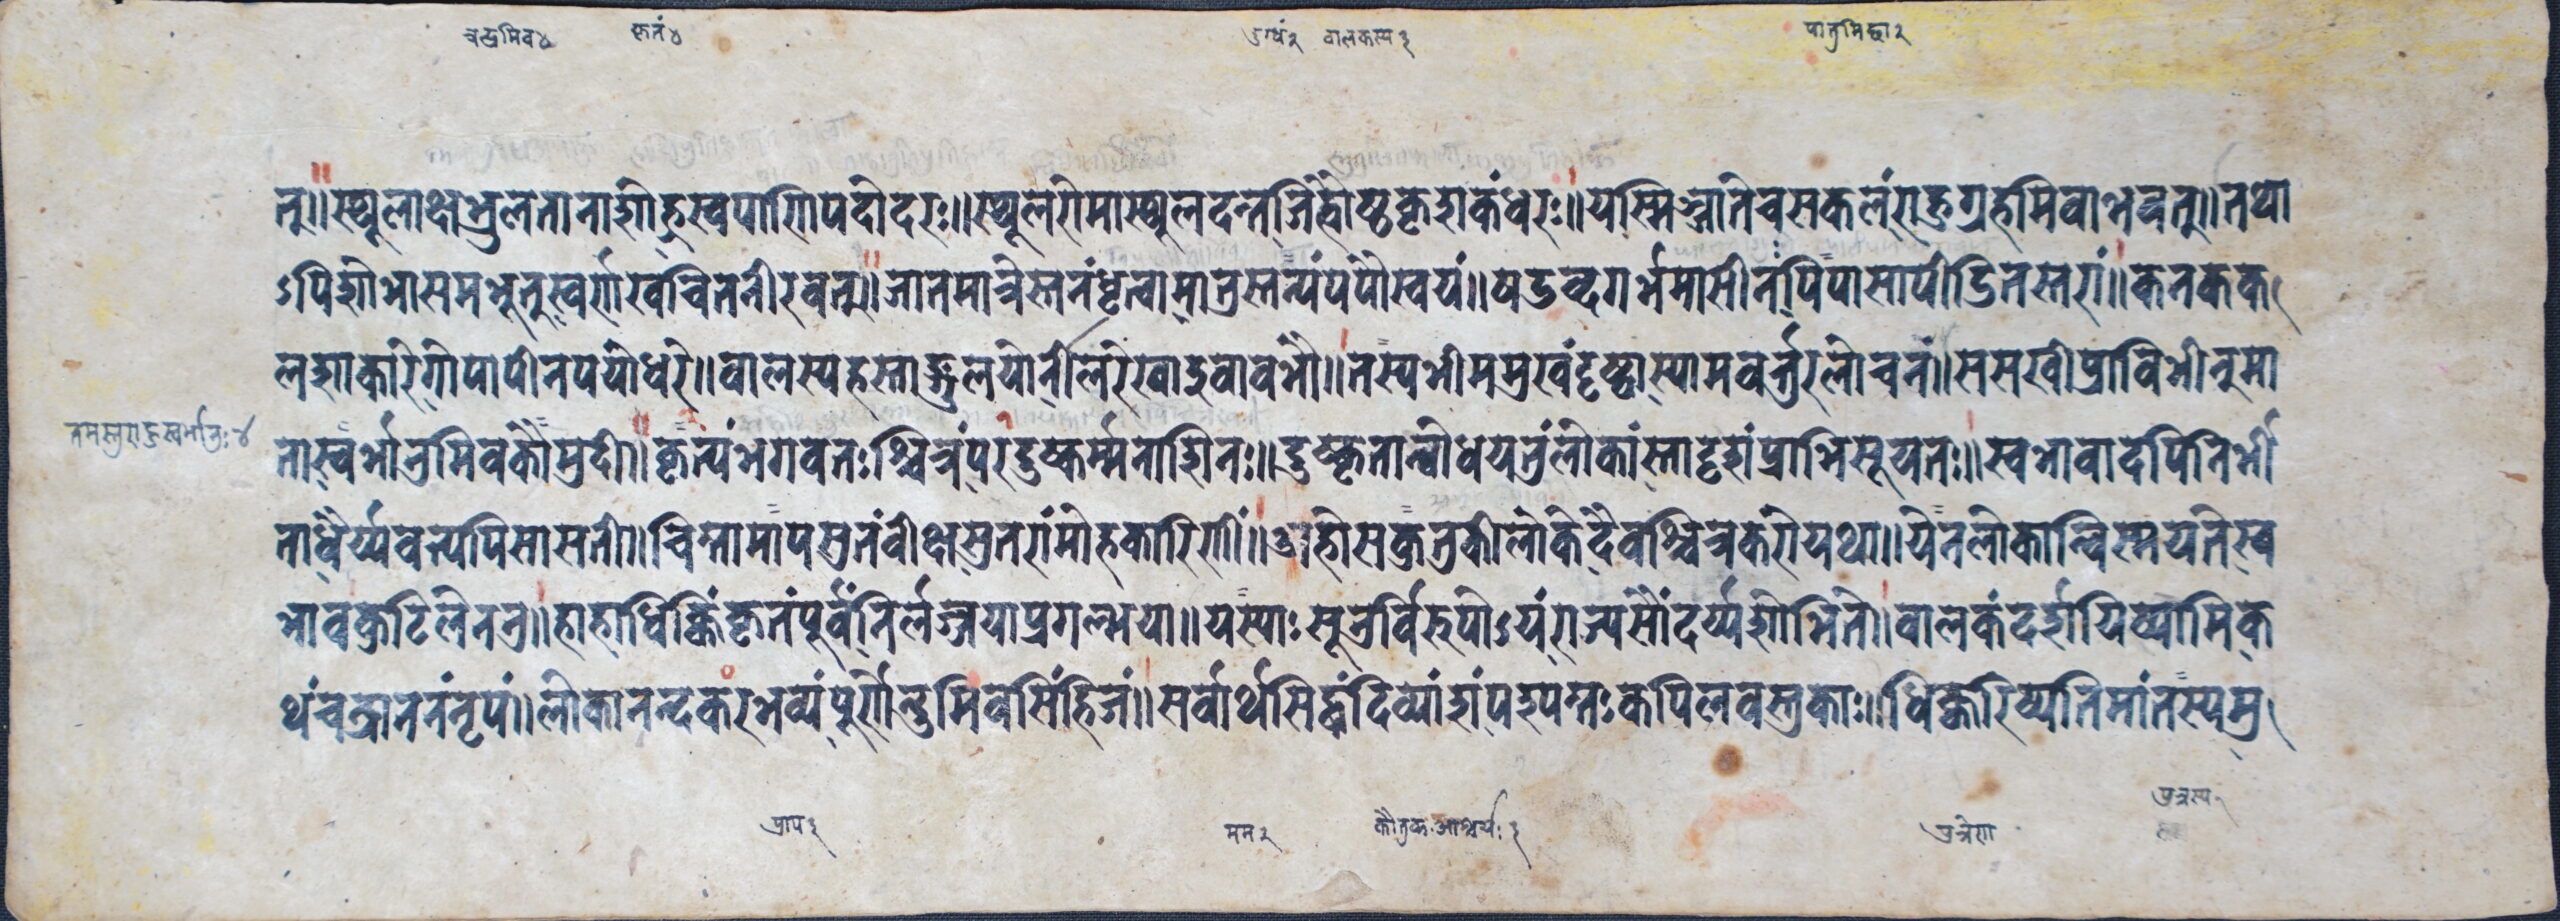 चन्द्रमिव४ कृतं४ दुग्धं२ बालकस्य३ पातुमिछा२
त्॥स्थूलाक्षभ्रुलतानाशीह्रस्वपाणिपदोदरः॥स्थूलरोमास्थुलदन्तजिंह्वोष्ठकृशकंधरः॥यस्मिञ्जातेचसकलंराहुग्रहमिवाभवत्॥तथा
ऽपिशोभासमभूत्स्वर्णखचितनीरवत्॥जातमात्रेस्तनंधृत्वामातुस्तन्यंपपौस्वयं॥षडब्दगर्भमासीनंपिपासापीडितस्तरां॥कनकक
लशाकारेगोपापीनपयोधरे॥बालस्यहस्ताङ्गुलयोनीलरेखाइवावभौ॥तस्यभीममुखंदृष्ट्वास्यामवर्तुरलोचनं॥ससखीप्राविभीतुमा
तमस्तुराहुस्वर्भानुः४
तास्वर्भानुमिवकौमुदी॥कृत्यंभगवतःश्चित्रंपरदुष्कर्म्मनाशिनः॥दुष्कृतान्वोधयतुंलोकांस्तादृशंप्राभिसूयतः॥स्वभावादपिनिर्भी
ताधैर्य्यवत्यपिसासती॥चिन्तामापसुतंवीक्षसुतरांमोहकारिणीं॥अहोसकुतुकोलोकेदैवश्चित्रकरोयथा॥येनलोकान्विस्मयतेस्व
भावकुटिलेनतु॥हाहाधिक्किंकृतंपूर्वंनिर्लज्जयाप्रगल्भया॥यस्याःसूनुर्विरुपोऽयंराज्यसौंदर्य्यशोभिते॥बालकंदर्शयिष्यामिक
थंचव्राननंनृपं॥लोकानन्दकरभव्यंपुर्णेन्दुमिवसिंहिजं॥सर्वार्थसिद्धंदिव्यांशंपश्यन्तःकपिलवस्तुकाः॥धिक्करिष्यतिमांतस्यमु
पुत्रस्य
प्राप३ मम२ कौतुक.आश्चर्यः३ पुत्रेण